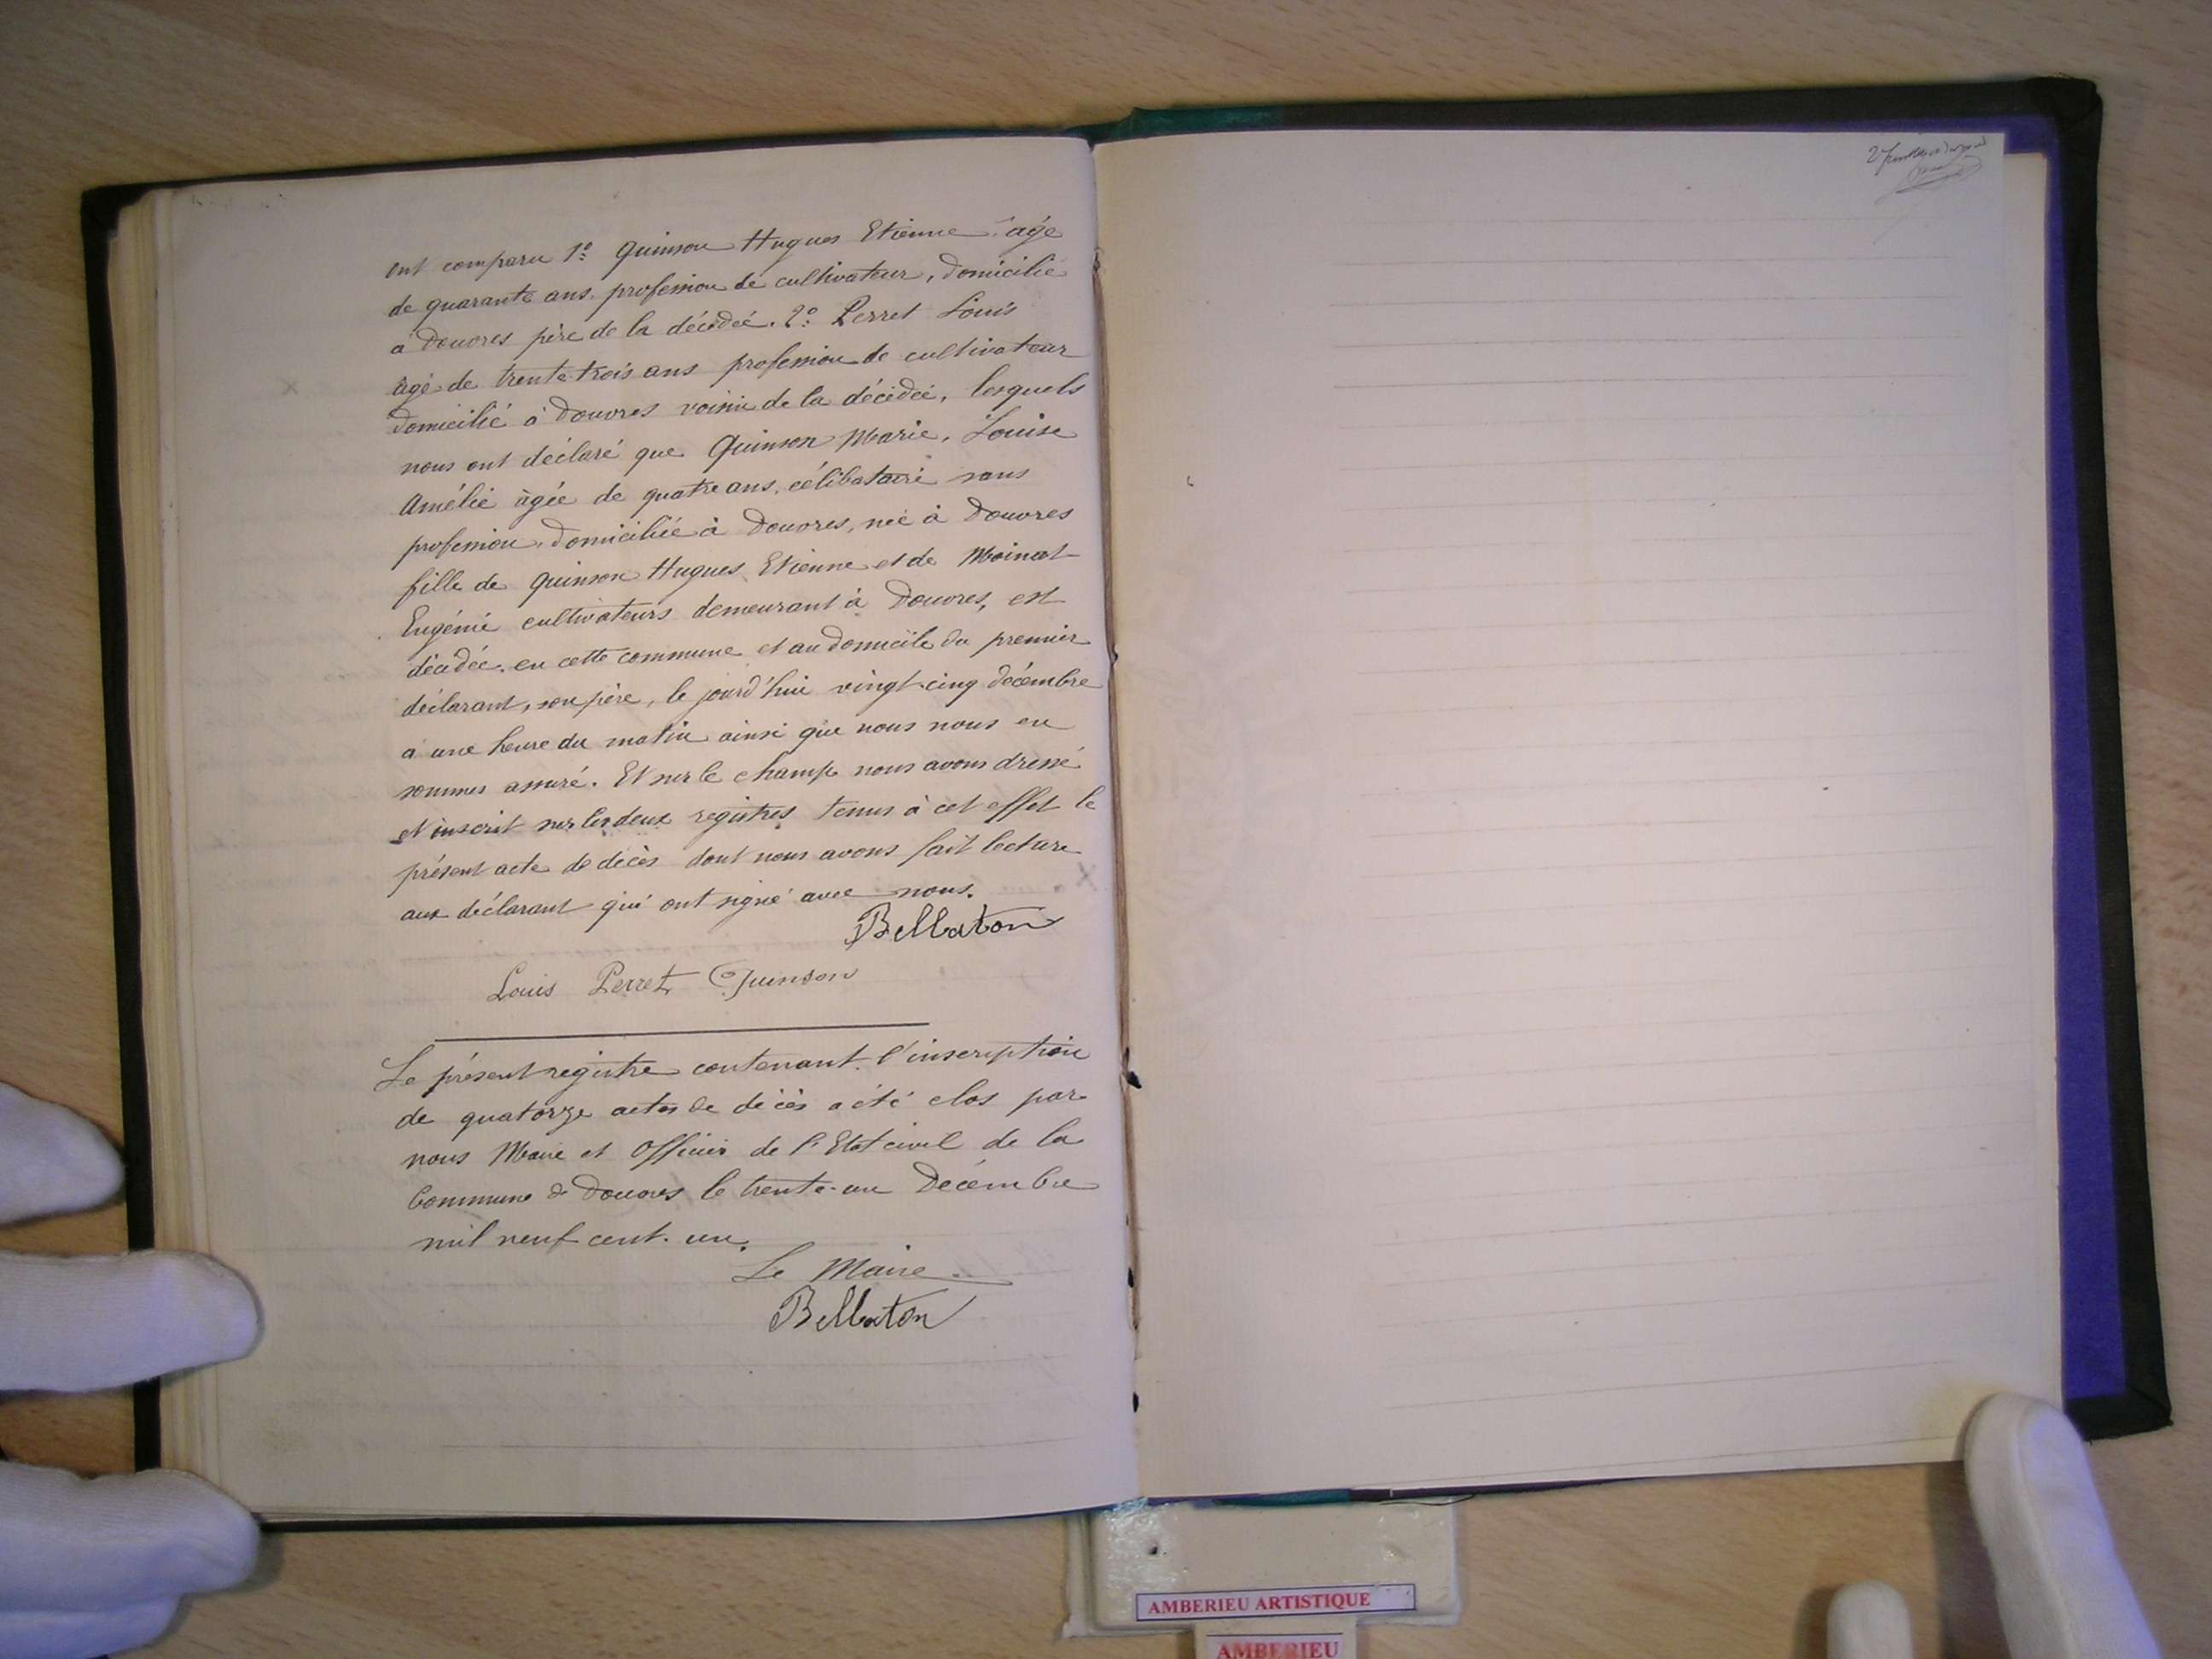 ont comparu 1º Quinson Hugues Etienne âgé
de quarante ans, profession de cultivateur, domicilié
à Douvres père de la décédée. 2º Perret Louis
âgé de trente-trois ans profession de cultivateur
domicilié à Douvres voisin de la décédée, lesquels
nous ont déclaré que Quinson Marie, Louise
Amélie âgée de quatre ans, célibataire sans
profession, domiciliée à Douvres, née à Douvres
fille de Quinson Hugues Etienne et de Moinat
Eugénie cultivateurs demeurant à Douvres, est
décédée en cette commune et au domicile du premier
déclarant, son père, le jourd'hui vingt-cinq décembre
à une heure du matin ainsi que nous nous en
sommes assuré. Et sur le champ nous avons dressé
et inscrit sur les deux registres tenus à cet effet le
présent acte de décès dont nous avons fait lecture
aux déclarant qui ont signé avec nous.
Bellaton
Louis Perret Quinson
Le présent registre contenant l'inscription
de quatorze actes de décès a été clos par
nous Maire et Officier de l'Etat civil de la
Commune de Douvres le trente-un Décembre
mil neuf cent un.
Le Maire
Bellaton
AMBERIEU ARTISTIQUE
AMBERIEU